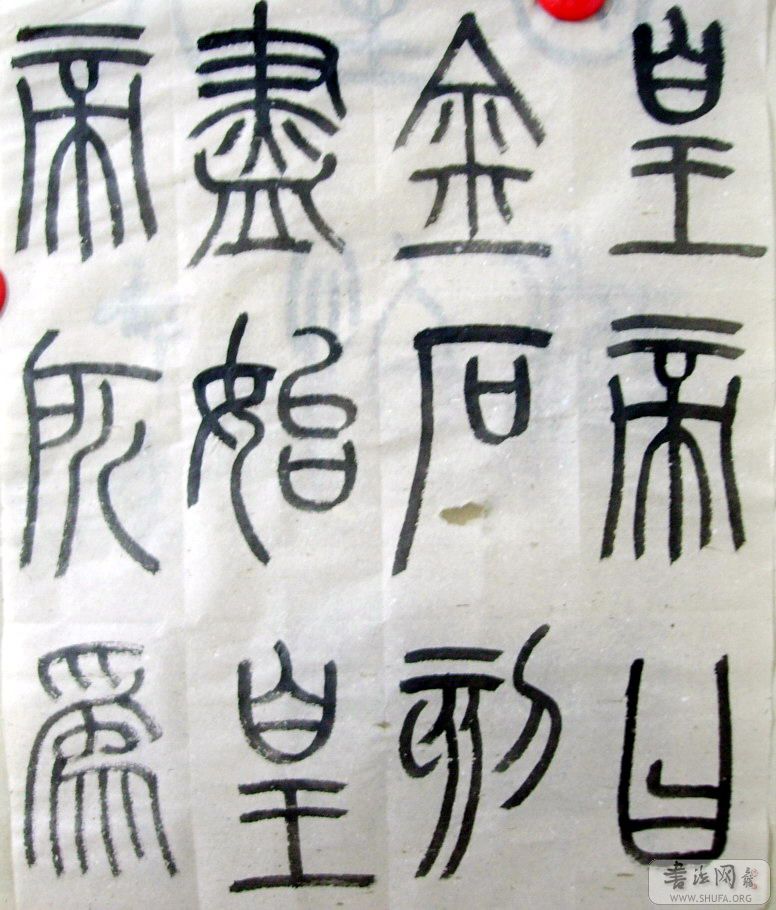 皇帝曰
金石刻
盡始皇
帝所為
书法网
WWW.SHUFA.ORG